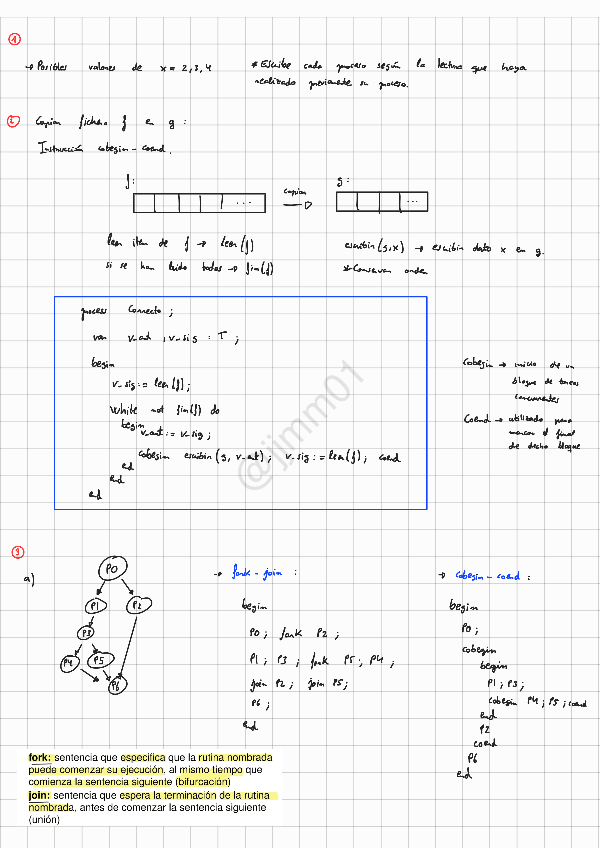 1
→ Posibles valores de x = 2, 3, 4
* Escribe cada proceso según la lectura que haya
realizado previamente su proceso.
2 Copiar fichero f en g :
Instrucción cobegin-coend.
f:
copiar
g:
...
...
leer item de f → leer(f)
si se han leido todos → fin(f)
escribir(g,x) → escribir dato x en g.
* Conservar orden
process Correcto ;
var v_ant , v_sig : T ;
begin
v_sig := leer(f) ;
while not fin(f) do
begin
v_ant := v_sig ;
cobegin escribir(g, v_ant) ; v_sig := leer(f) ; coend
end
end
end
Cobegin → inicio de un
bloque de tareas
concurrentes
Coend → utilizado para
marcar el final
de dicho bloque
@jjmm01
3
a)
P0
P1
P2
P3
P4
P5
P6
→ fork - join :
begin
P0 ; fork P2 ;
P1 ; P3 ; fork P5 ; P4 ;
join P2 ; join P5 ;
P6 ;
end
→ cobegin - coend :
begin
P0 ;
cobegin
begin
P1 ; P3 ;
cobegin P4 ; P5 ; coend
end
P2
coend
P6
end
fork: sentencia que especifica que la rutina nombrada
puede comenzar su ejecución, al mismo tiempo que
comienza la sentencia siguiente (bifurcación)
join: sentencia que espera la terminación de la rutina
nombrada, antes de comenzar la sentencia siguiente
(unión)